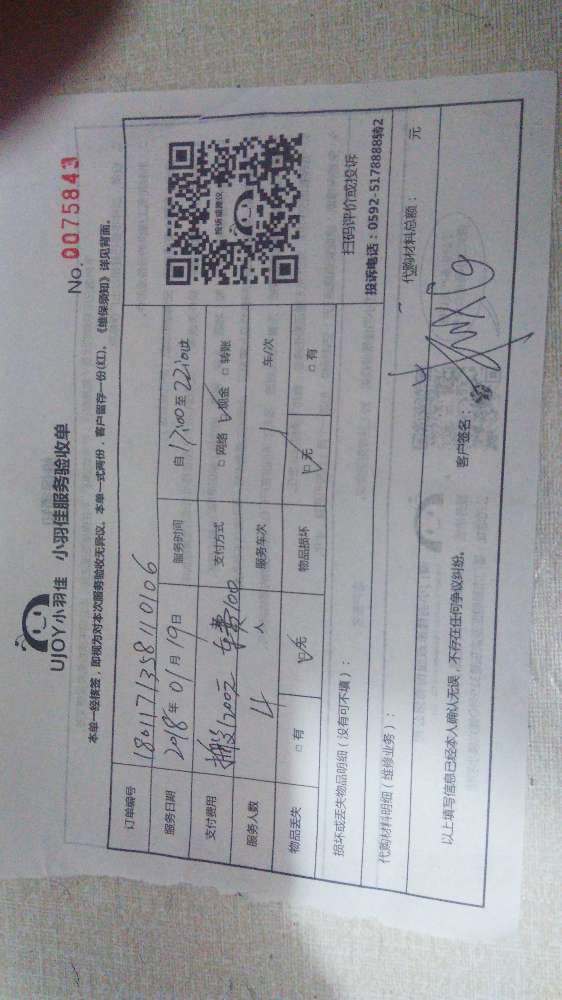 UJOY小羽佳 小羽佳服务验收单
No. 0075843
本单一经核签，即视为对本次服务验收无异议。本单一式两份，客户留存一份(红)，《维保须知》详见背面。
订单编号 1801171358110106
服务日期 2018年01月19日 服务时间 自17:00至22:00止
支付费用 搬运1200元 车费100 支付方式 □网络 ☑现金 □转账
服务人数 4人 服务车次 1 车/次
物品丢失 □有 ☑无 物品损坏 ☑无 □有
投诉或建议
扫码评价或投诉
投诉电话：0592-5178888转2
损坏或丢失物品明细（没有可不填）：
代购材料明细（维修业务）： 代购材料总额： 元
以上填写信息已经本人确认无误，不存在任何争议纠纷。 客户签名：